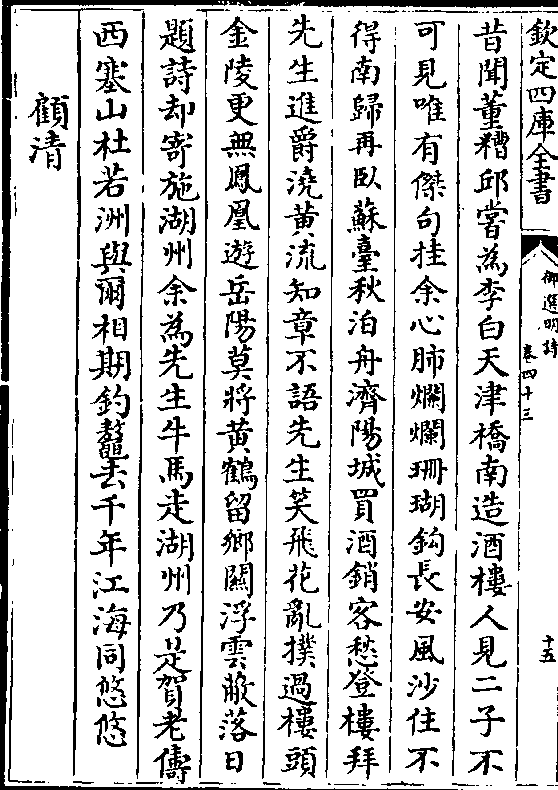 欽定四庫全書
御選明詩
卷四十三
十五
昔聞董糟邱嘗為李白天津橋南造酒樓人見二子不
可見唯有傑句挂余心肺爛爛珊瑚鉤長安風沙住不
得南歸再臥蘇臺秋泊舟濟陽城買酒銷客愁登樓拜
先生進爵澆黃流知章不語先生笑飛花亂撲過樓頭
金陵更無鳳凰遊岳陽莫將黃鶴留鄉關浮雲蔽落日
題詩却寄施湖州余為先生牛馬走湖州乃是賀老儔
西塞山杜若洲與爾相期釣鼇去千年江海同悠悠
顧清